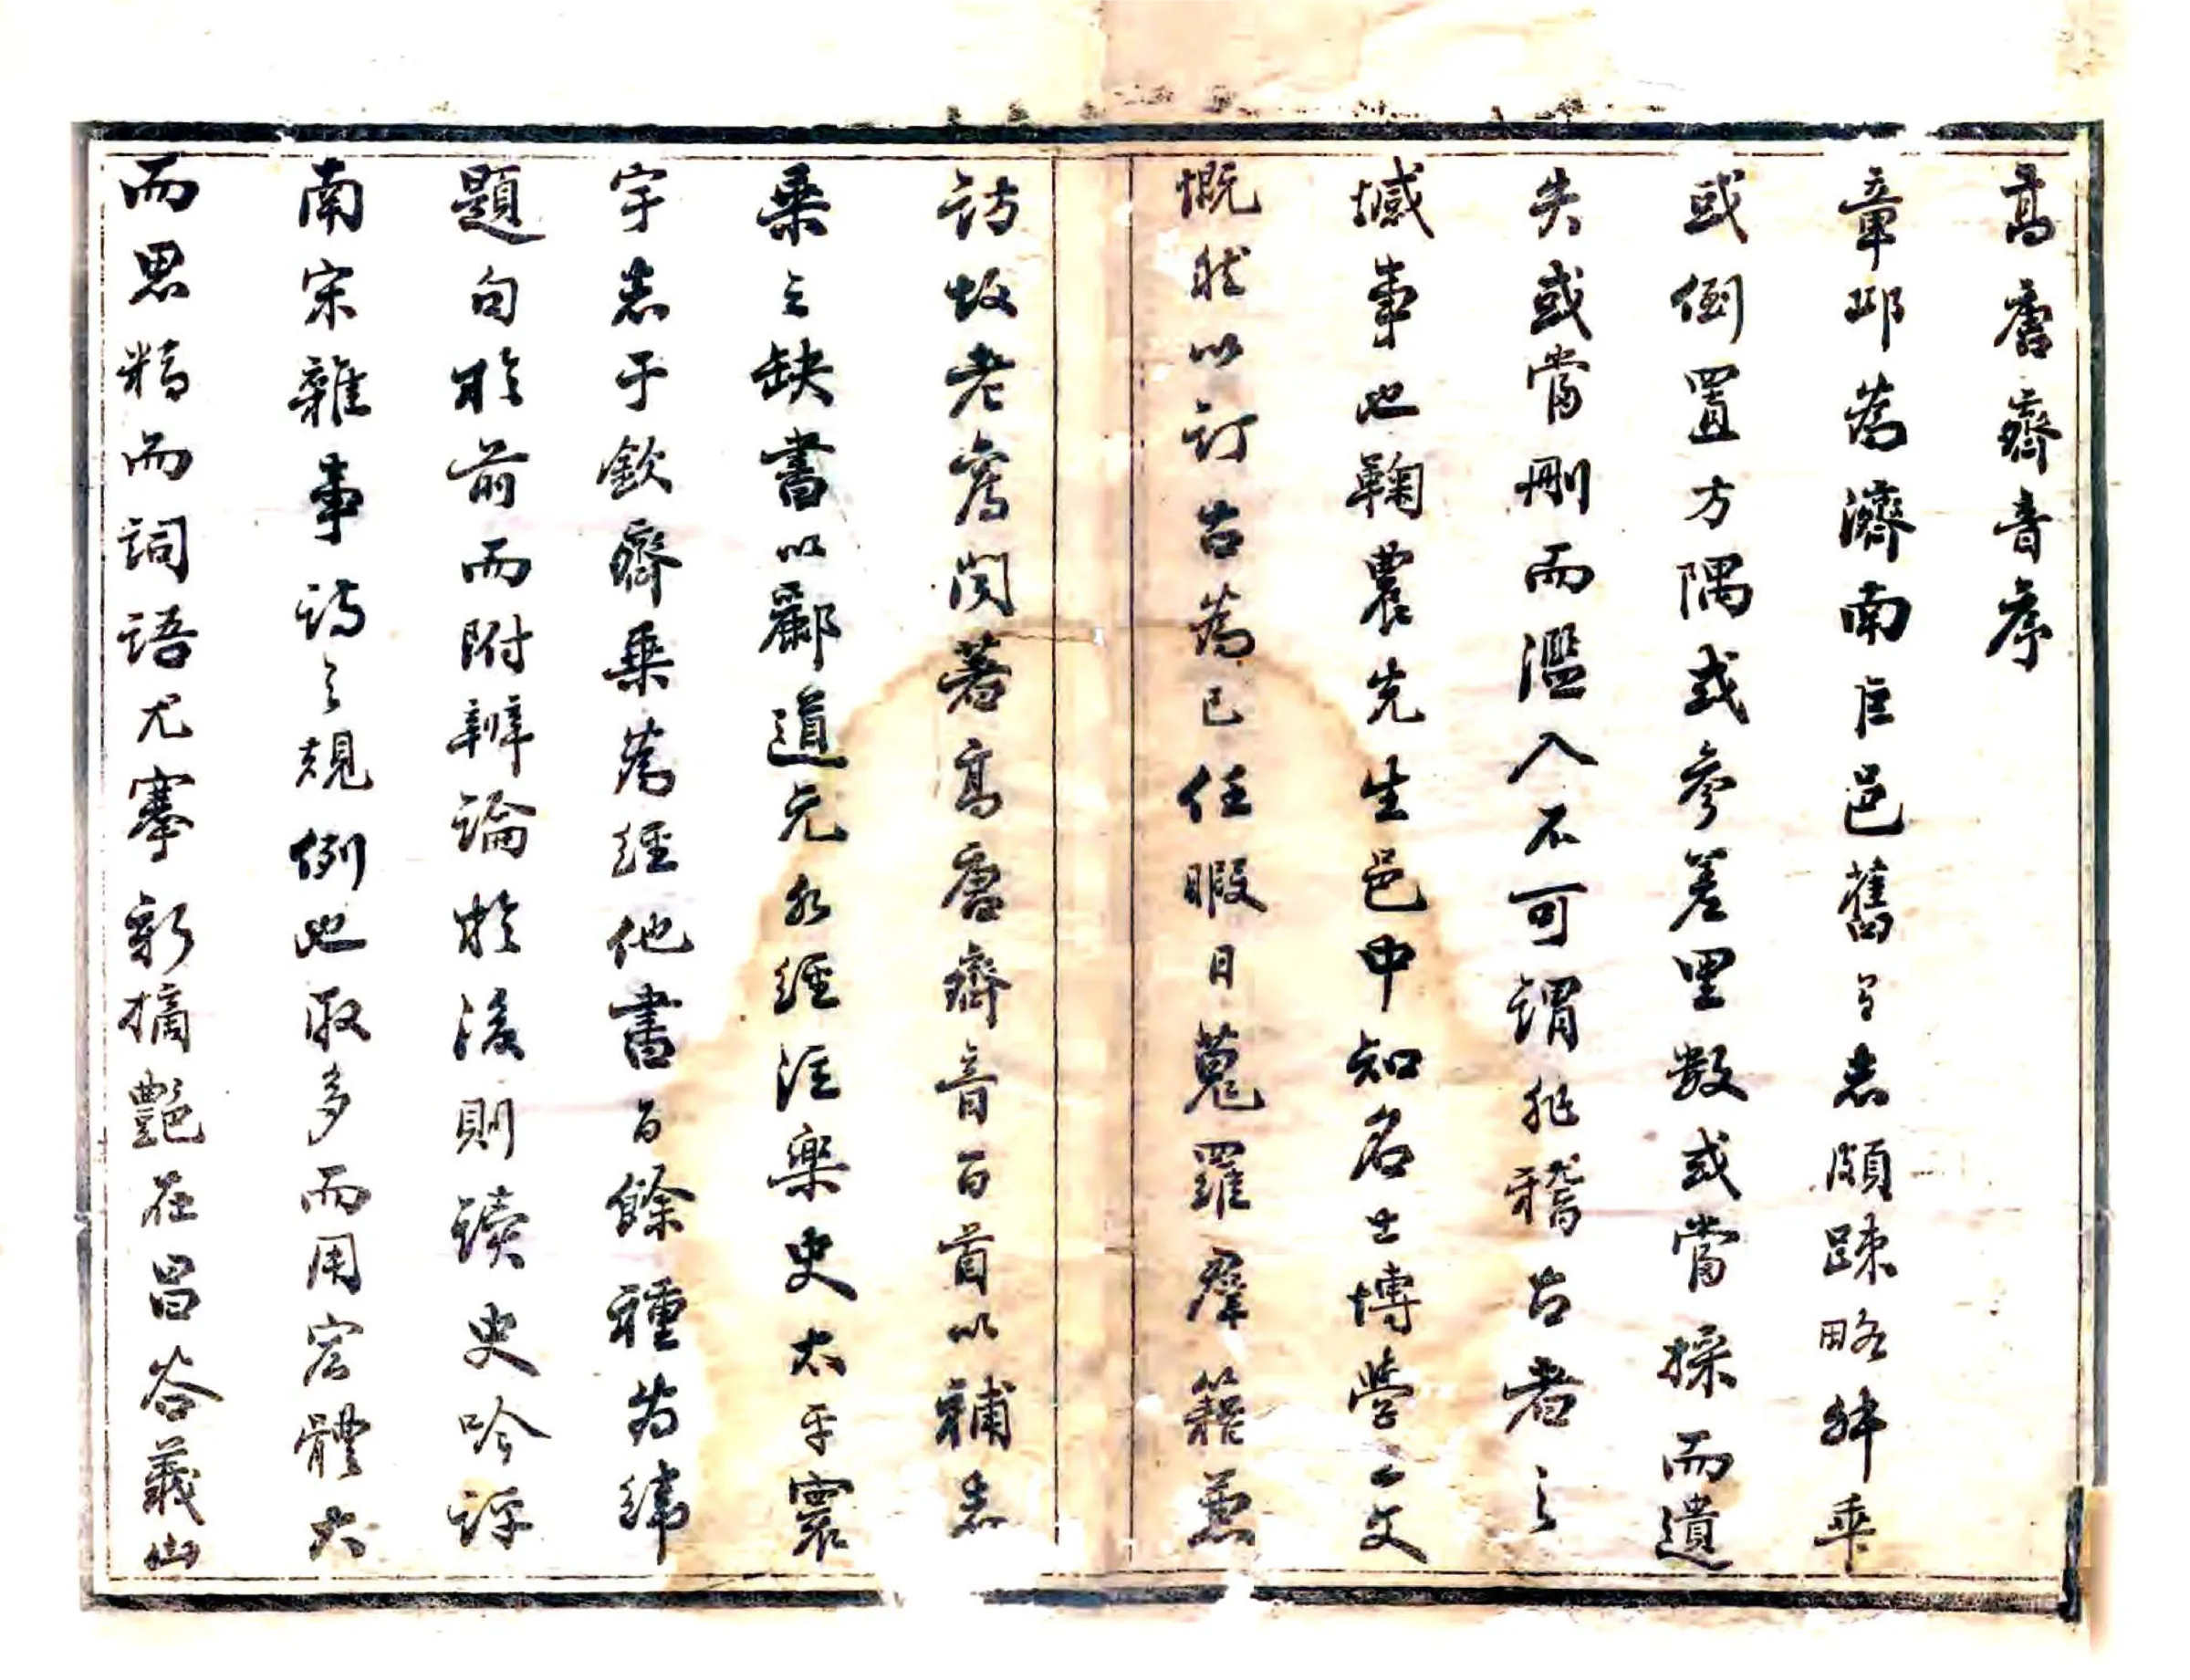 高唐齊音序
章邱為濟南巨邑舊有志頗疎略舛乖
或倒置方隅或參差里数或當採而遺
失或當刪而濫入不可謂非稽古者之
憾事也鞠農先生邑中知名士博學工文
慨然以訂古為己任暇日蒐羅羣籍兼
訪故老舊聞著高唐齊音百首以補志
乗之缺書以酈道元水經注樂史太平寰
宇志于欽齊乗為經他書百餘種為緯
題句於前而附辨論於後則讀史吟評
南宋雜事詩之規例也取多而用宏體大
而思精而詞語尤搴新摘艷在昌谷義山